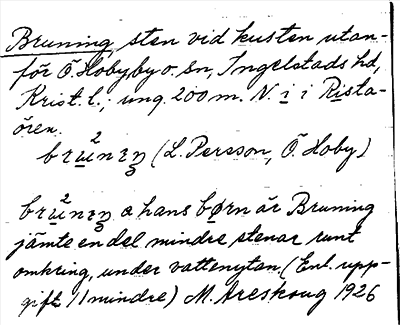 Bruning, sten vid kusten utan-
för Ö. Hoby by o. sn, Ingelstads hd,
Krist. l.; ung. 200 m. N. i i Rista-
ören.
bru²nɪŋ (L. Persson, Ö. Hoby)
bru²nɪŋ o hans børn är Bruning
jämte en del mindre stenar runt
omkring, under vattenytan (Enl. upp-
gift 11 mindre) M. Areskoug 1926